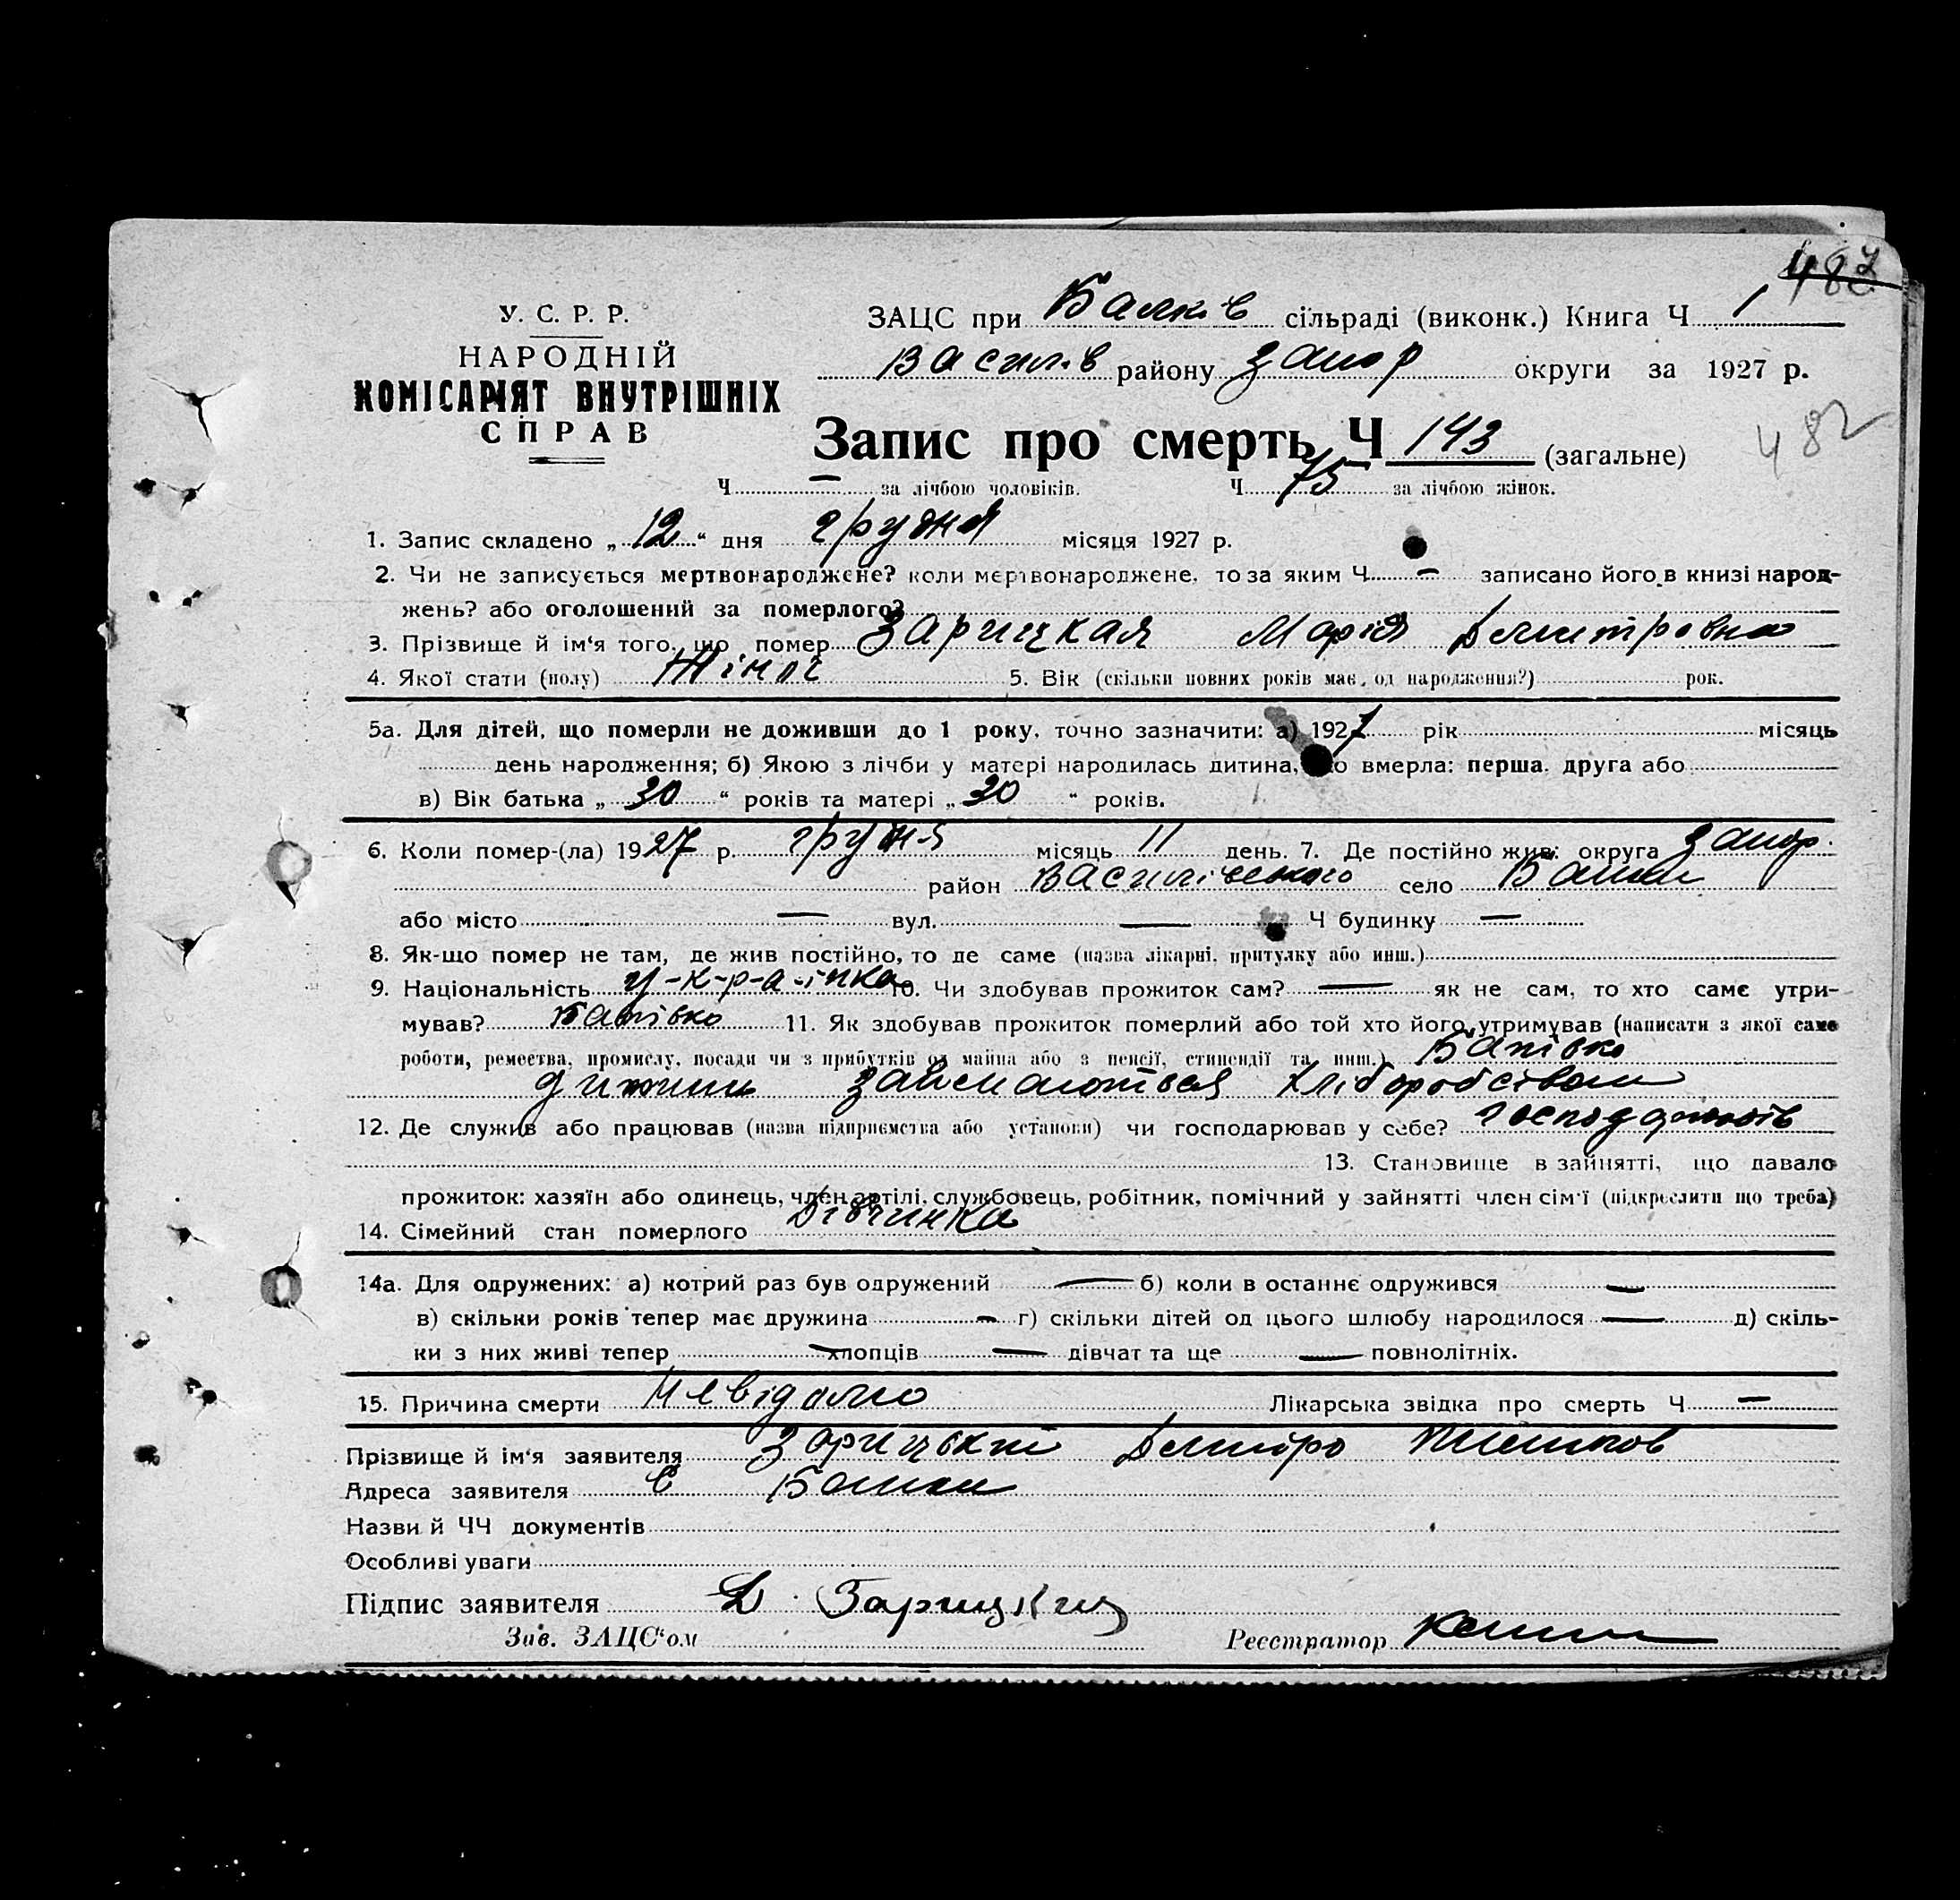 482
У. С. Р. Р.
НАРОДНІЙ
КОМІСАРІЯТ ВНУТРІШНІХ
СПРАВ
ЗАЦС при Балків сільраді (виконк.) Книга Ч 1
Васил.в району Запор округи за 1927 р.
Запис про смерть Ч 143 (загальне)
482
Ч — за лічбою чоловіків. Ч 75 за лічбою жінок.
1. Запис складено „ 12 “ дня грудня місяця 1927 р.
2. Чи не записується мертвонароджене? коли мертвонароджене, то за яким Ч — записано його в книзі народ-
жень? або оголошений за померлого?
3. Прізвище й ім‘я того, що помер Зарицкая Марія Дмитровна
4. Якої стати (полу) Жіноч 5. Вік (скільки повних років має, од народження?) рок.
5а. Для дітей, що померли не доживши до 1 року, точно зазначити: а) 1927 рік місяць
день народження; б) Якою з лічби у матері народилась дитина, що вмерла: перша, друга або
в) Вік батька „ 30 “ років та матері „ 30 “ років.
6. Коли помер-(ла) 1927 р. грудня місяць 11 день. 7. Де постійно жив: округа Запор.
район Василівського село Балки
або місто — вул. — Ч будинку —
8. Як-що помер не там, де жив постійно, то де саме (назва лікарні, притулку або инш.)
9. Національність у-к-р-а-їнка 10. Чи здобував прожиток сам? — як не сам, то хто саме утри-
мував? Батівко 11. Як здобував прожиток померлий або той хто його утримував (написати з якої саме
роботи, ремества, промислу, посади чи з прибутків од майна або з пенсії, стипендії та инш.) Батівко
займаються хліборобством
12. Де служив або працював (назва підприємства або установи) чи господарював у себе?
13. Становище в зайнятті, що давало
прожиток: хазяїн або одинець, член артілі, службовець, робітник, помічний у зайнятті член сім‘ї (підкреслити що треба)
14. Сімейний стан померлого Дівчинка
14а. Для одружених: а) котрий раз був одружений — б) коли в останнє одружився —
в) скільки років тепер має дружина — г) скільки дітей од цього шлюбу народилося — д) скіль-
ки з них живі тепер — хлопців — дівчат та ще — повнолітніх.
15. Причина смерти Невідомо Лікарська звідка про смерть Ч —
Прізвище й ім‘я заявителя Зарицький Дмитро
Адреса заявителя с Балки
Назви й ЧЧ документів
Особливі уваги
Підпис заявителя Д. Зарицкий
Зав. ЗАЦС‘ом Реєстратор